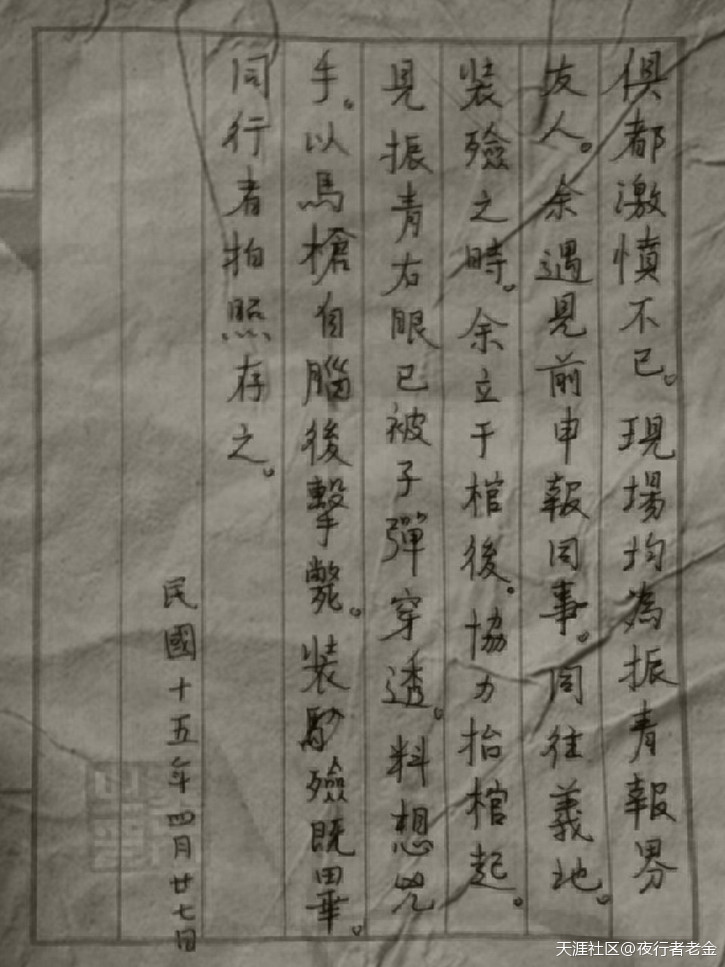 俱都激憤不已。現場均為振青報界
友人。余遇見前申報同事。同往義地。
裝殮之時。余立于棺後。協力抬棺起。
見振青右眼已被子彈穿透。料想兇
手。以馬槍自腦後擊斃。裝殮既畢。
同行者拍照存之。
民國十五年四月廿七日
天涯社区@夜行者老金